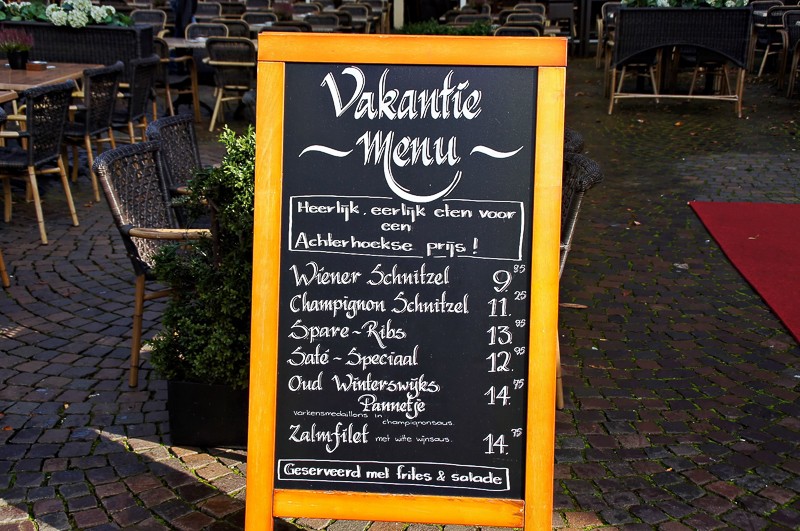 Vakantie
~ Menu ~
Heerlijk, eerlijk eten voor
een
Achterhoekse prijs!
Wiener Schnitzel 9.85
Champignon Schnitzel 11.25
Spare-Ribs 13.95
Saté-Speciaal 12.95
Oud Winterswijks
Pannetje 14.75
varkensmedaillons in
champignonsaus.
Zalmfilet met witte wijnsaus. 14.75
Geserveerd met frites & salade